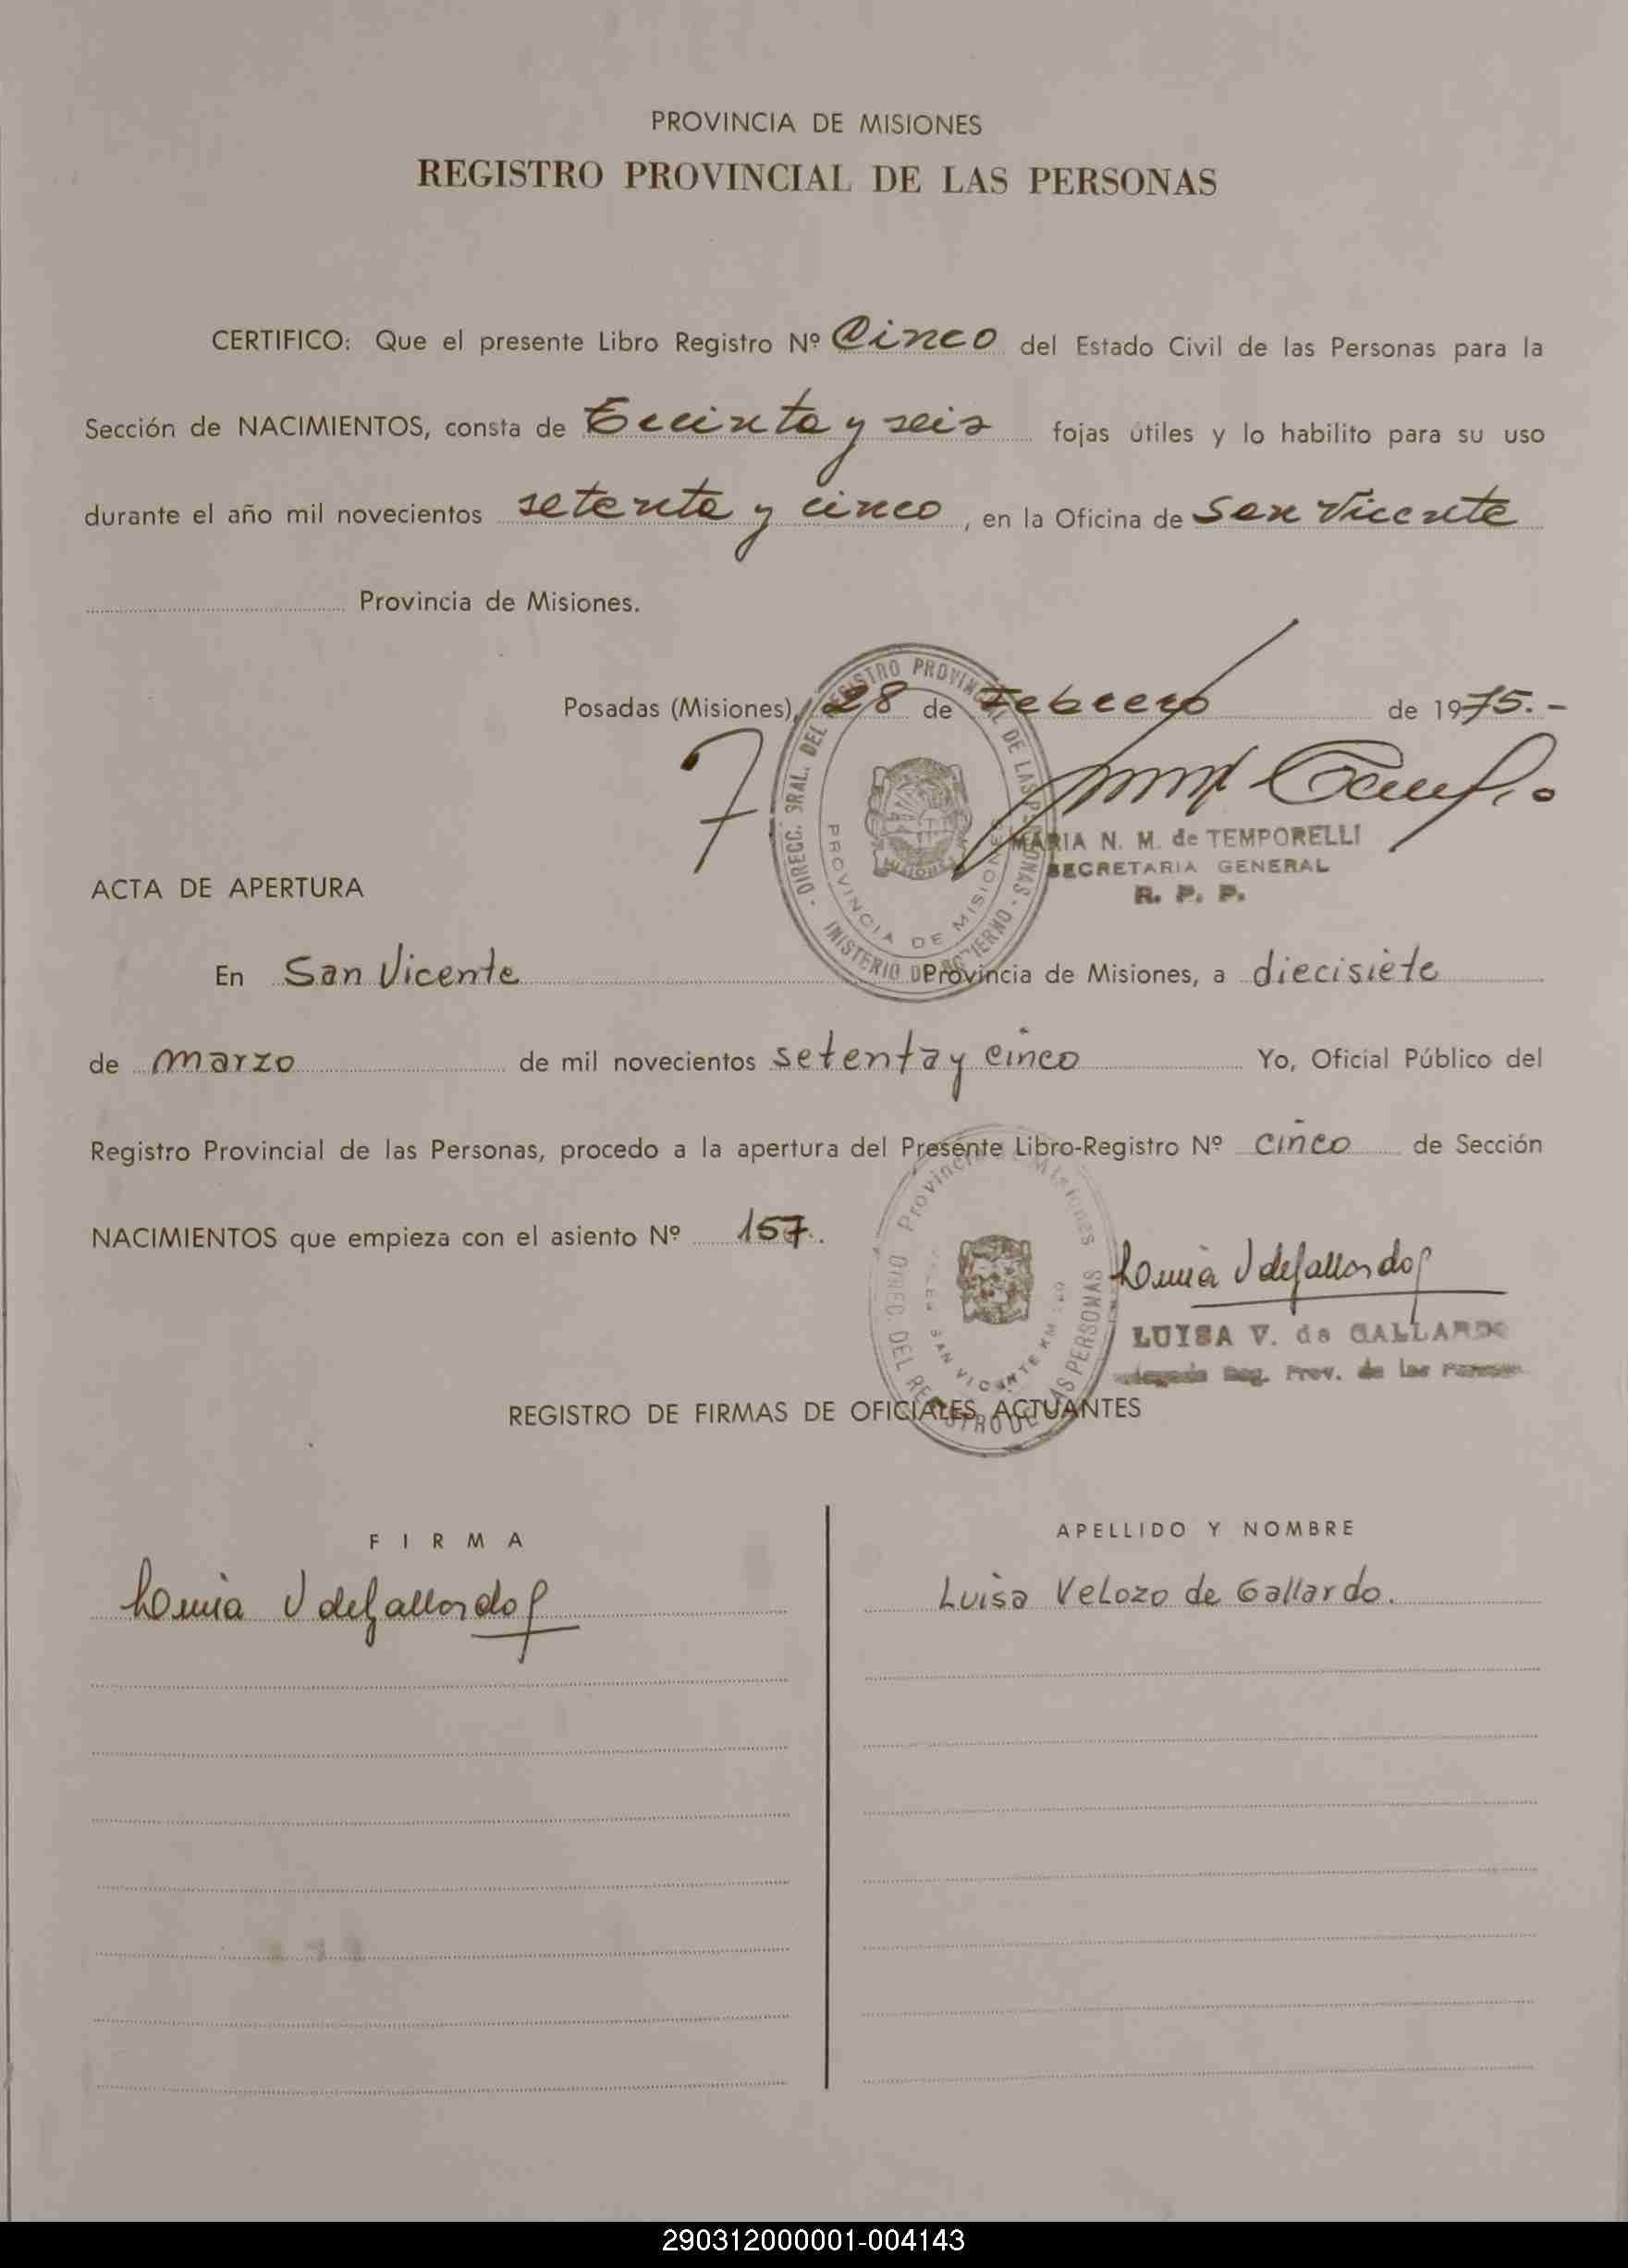 PROVINCIA DE MISIONES
REGISTRO PROVINCIAL DE LAS PERSONAS
CERTIFICO: Que el presente Libro Registro Nº Cinco del Estado Civil de las Personas para la
Sección de NACIMIENTOS, consta de Treinta y seis fojas útiles y lo habilito para su uso
durante el año mil novecientos setenta y cinco, en la Oficina de San Vicente
Provincia de Misiones.
Posadas (Misiones), 28 de Febrero de 1975.-
DIRECC. GRAL. DEL REGISTRO PROVINCIAL DE LAS PERSONAS - MINISTERIO DE GOBIERNO -
PROVINCIA DE MISIONES
MARIA N. M. de TEMPORELLI
SECRETARIA GENERAL
R. P. P.
ACTA DE APERTURA
En San Vicente Provincia de Misiones, a diecisiete
de marzo de mil novecientos setenta y cinco Yo, Oficial Público del
Registro Provincial de las Personas, procedo a la apertura del Presente Libro-Registro Nº cinco de Sección
NACIMIENTOS que empieza con el asiento Nº 157.
Provincia de Misiones
DIREC. DEL REGISTRO DE LAS PERSONAS
SAN VICENTE KM
Luisa V de Gallardo
LUISA V. de GALLARDO
Reg. Prov. de las Personas
REGISTRO DE FIRMAS DE OFICIALES ACTUANTES
FIRMA
APELLIDO Y NOMBRE
Luisa V de Gallardo
Luisa Velozo de Gallardo.
290312000001-004143